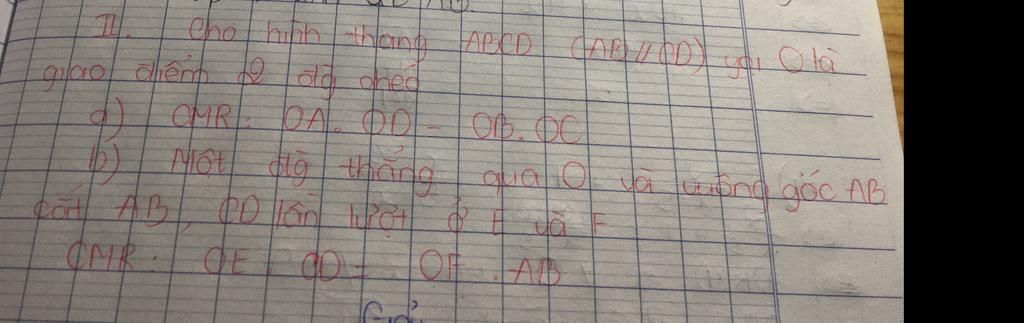 II. Cho hình thang ABCD (AB // CD) gọi O là
giao điểm 2 đg chéo
a) CMR: OA. OD = OB. OC
b) Một đg thẳng qua O và vuông góc AB
cắt AB, CD lần lượt ở E và F
CMR: OE. CD = OF. AB
Giải